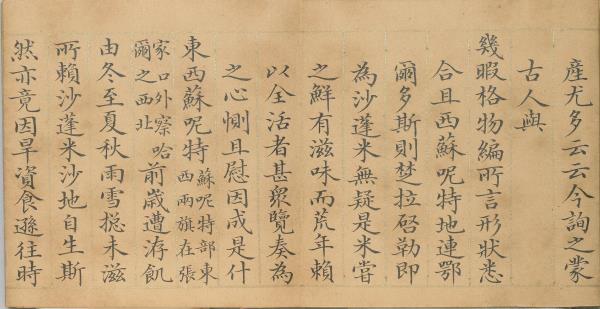 產尤多云云今詢之蒙
古人與
幾暇格物編所言形狀悉
合且西蘇呢特地連鄂
爾多斯則楚拉啓勒即
為沙蓬米無疑是米嘗
之鮮有滋味而荒年賴
以全活者甚眾覽奏為
之心惻且慰因成是什
東西蘇呢特蘇呢特部東西兩旗在張
家口外察哈爾之西北前歲遭洊飢
由冬至夏秋雨雪揔未滋
所賴沙蓬米沙地自生斯
然亦竟因旱資食遜往時